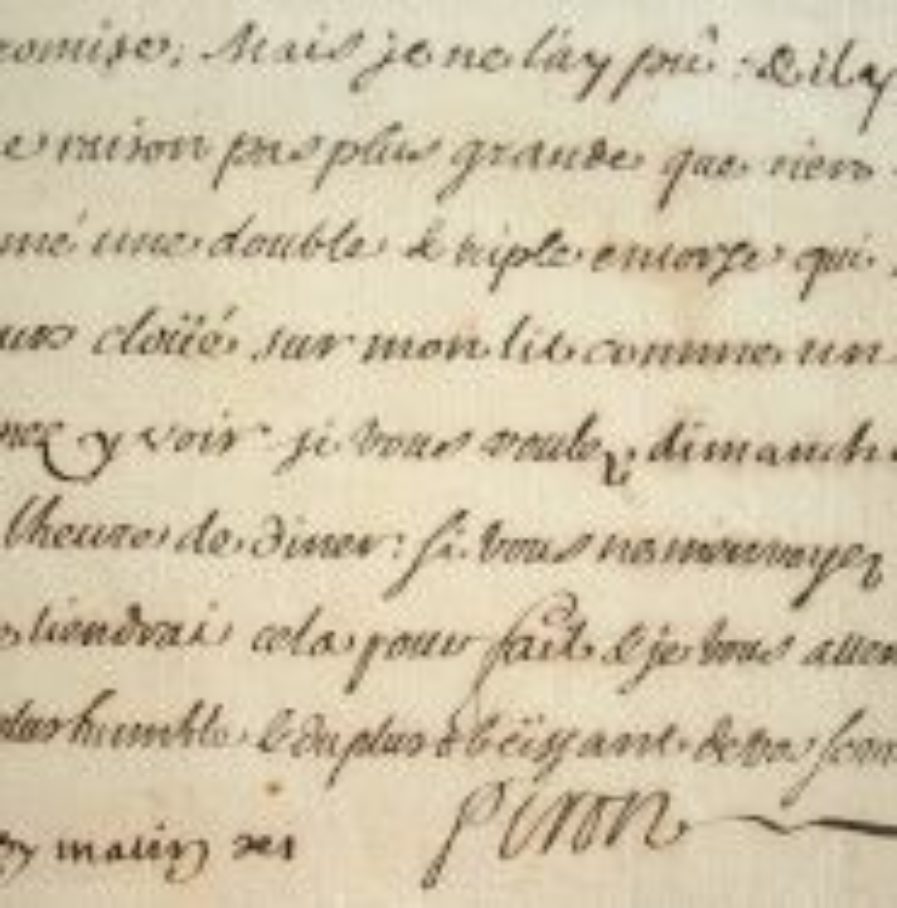 romise; Mais je ne l'ay pû: & il y
e raison pas plus grande que rien
mé une double & triple entorse qui
urs cloüé sur mon lit comme un
nez y voir si vous voulez dimanche
l'heure de diner: si vous
tiendrai cela pour fait & je vous atten
plus humble & du plus obëissant de vos serv
matin
Piron